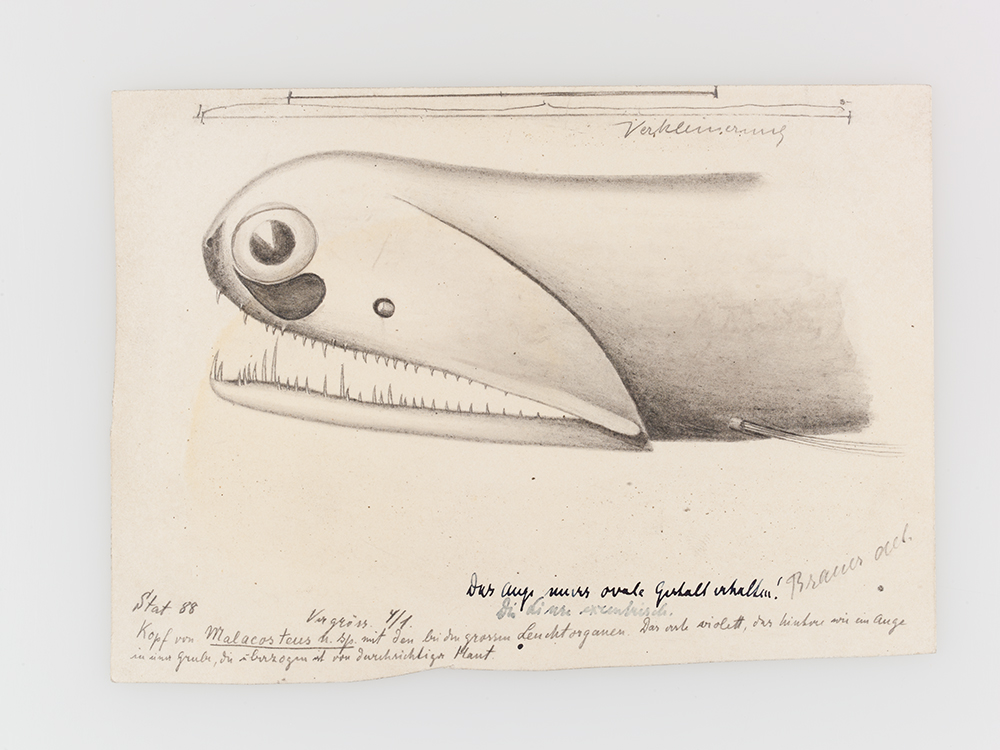 Verkleinerung
Das Auge muss ovale Gestalt erhalten!
Die Linse excentrisch.
Brauer
Stat 88
Vergröss. 4/1.
Kopf von Malacosteus n. sp. mit den beiden grossen Leuchtorganen. Das erste violett, das hintere wie ein Auge
in einer Grube, die überzogen ist von durchsichtiger Haut.